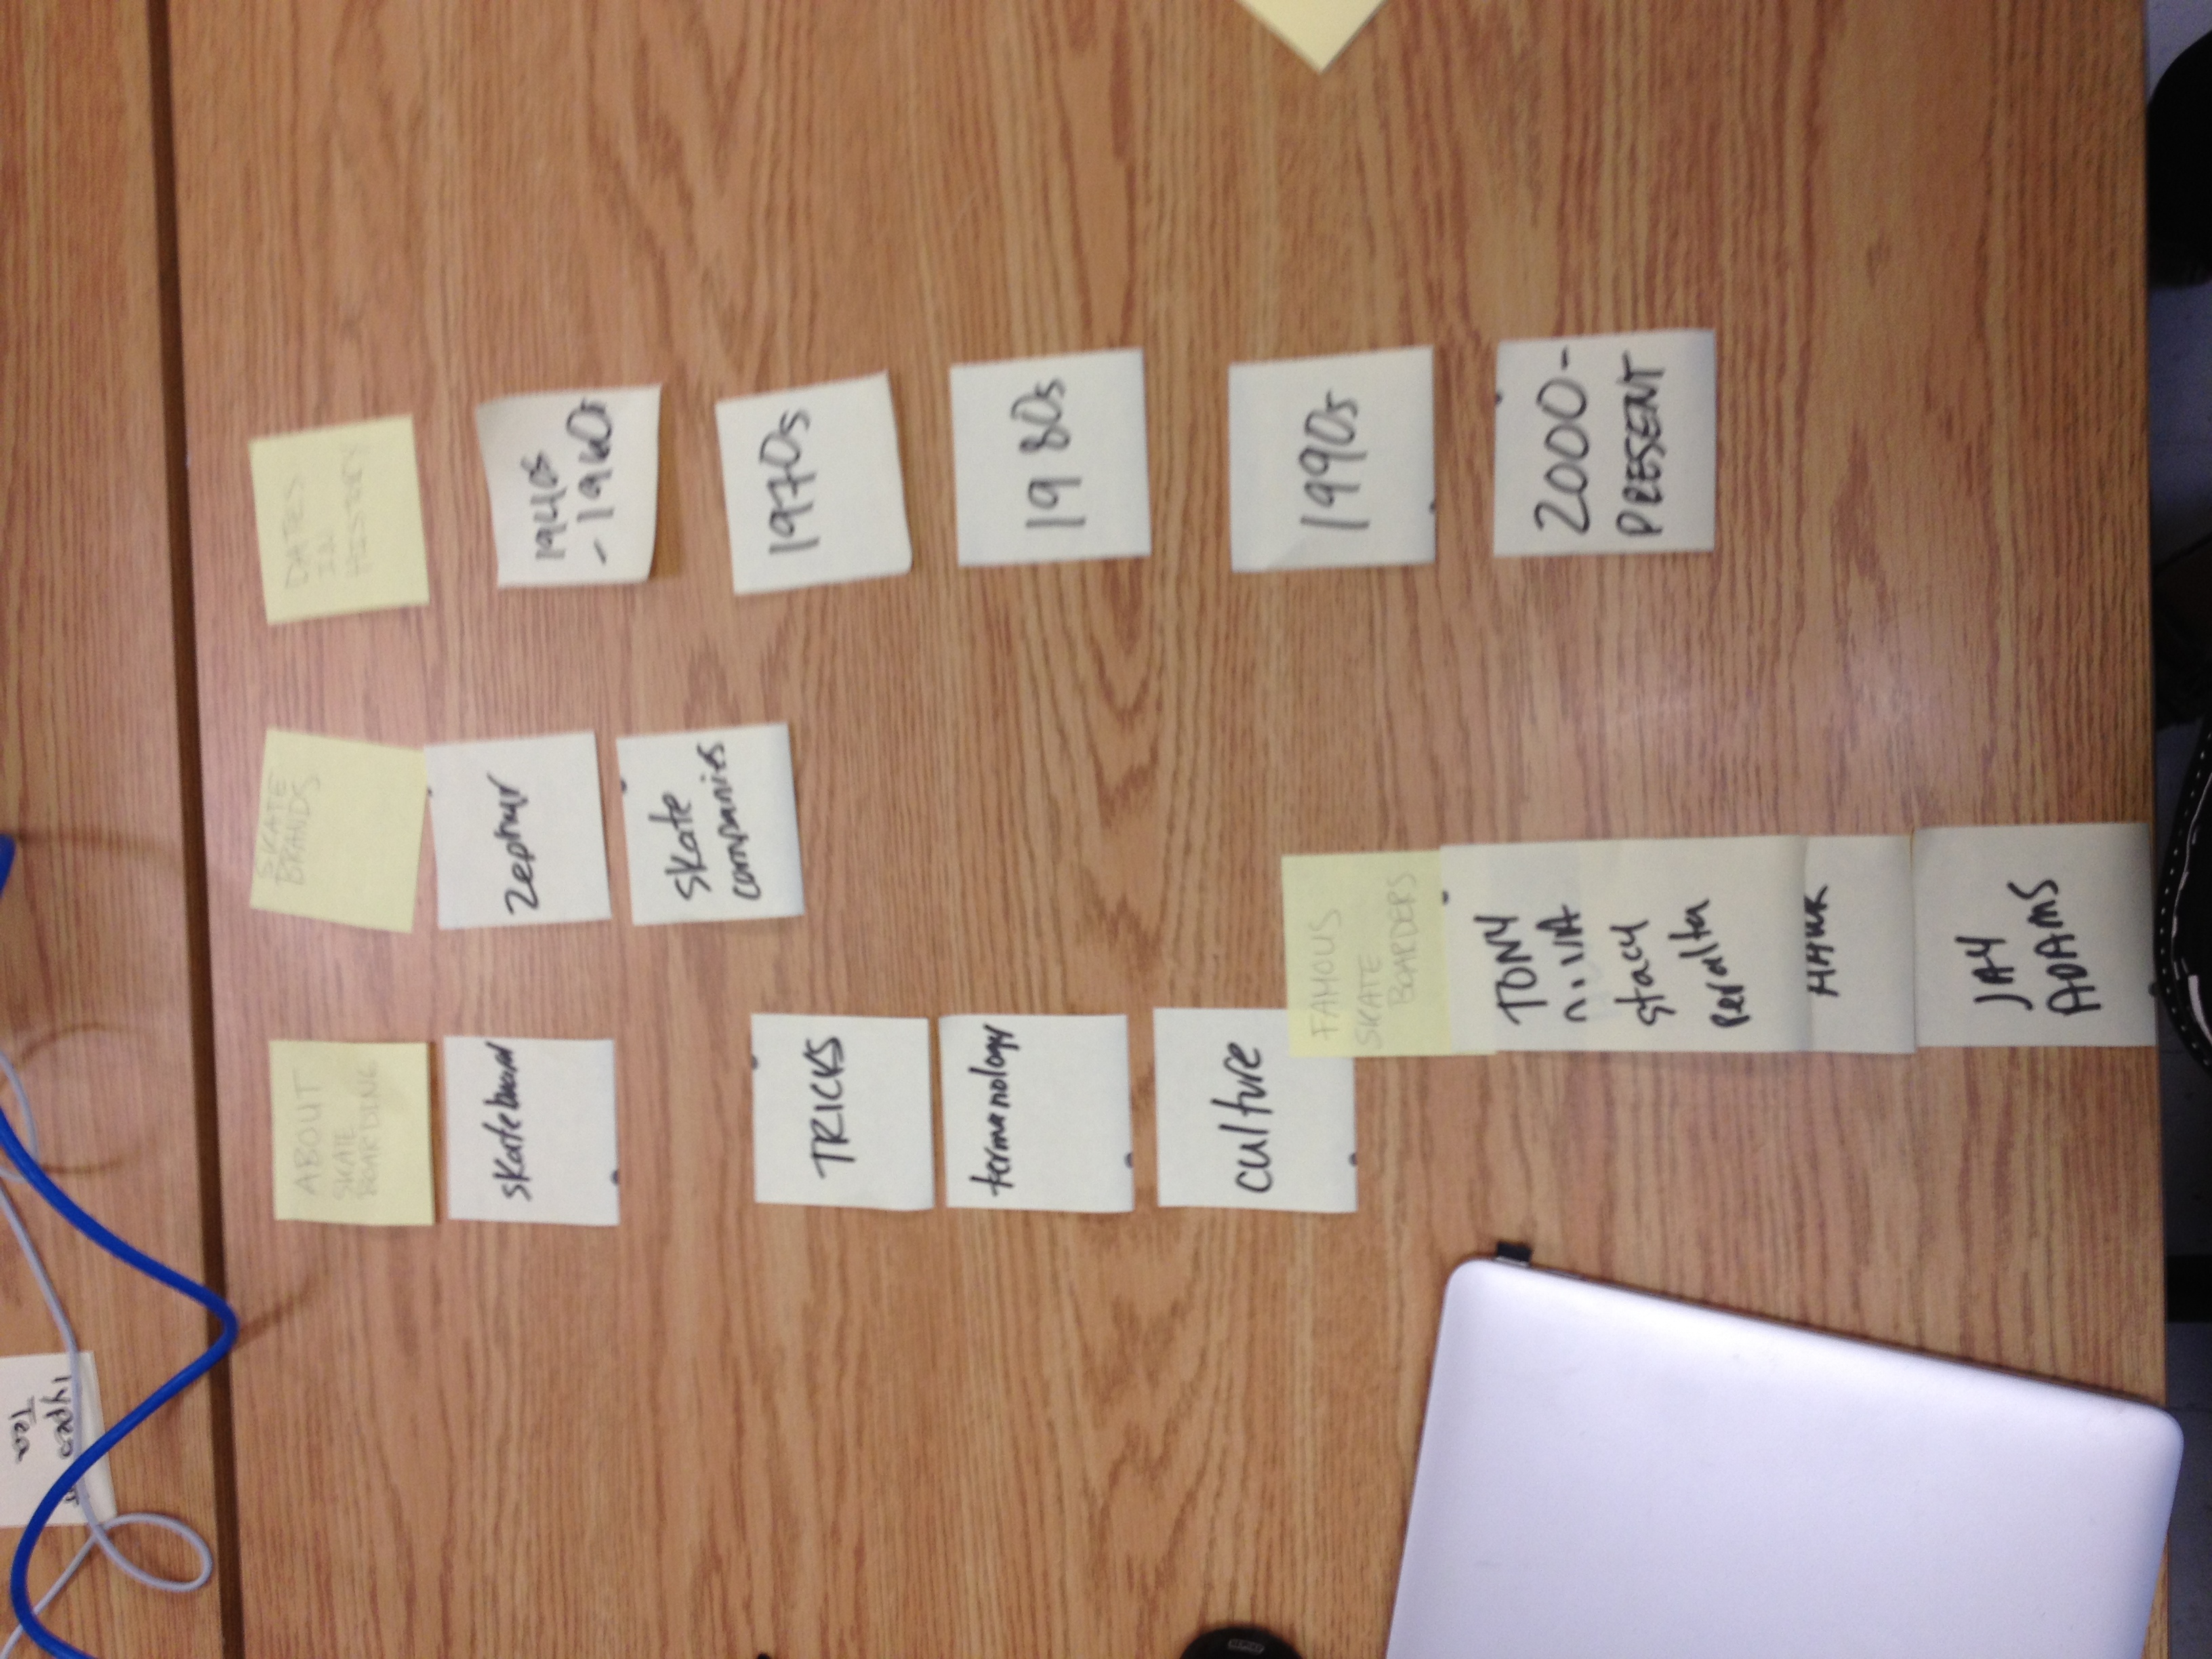 Types of
Tea
ABOUT
SKATE
BOARDING
skateboard
TRICKS
termanology
culture
SKATE
BRANDS
Zephyr
skate
companies
FAMOUS
SKATE
BOARDERS
TONY
stacy
peralta
HAWK
JAY
ADAMS
DATES
IN
HISTORY
1940s
- 1960s
1970s
1980s
1990s
2000-
PRESENT